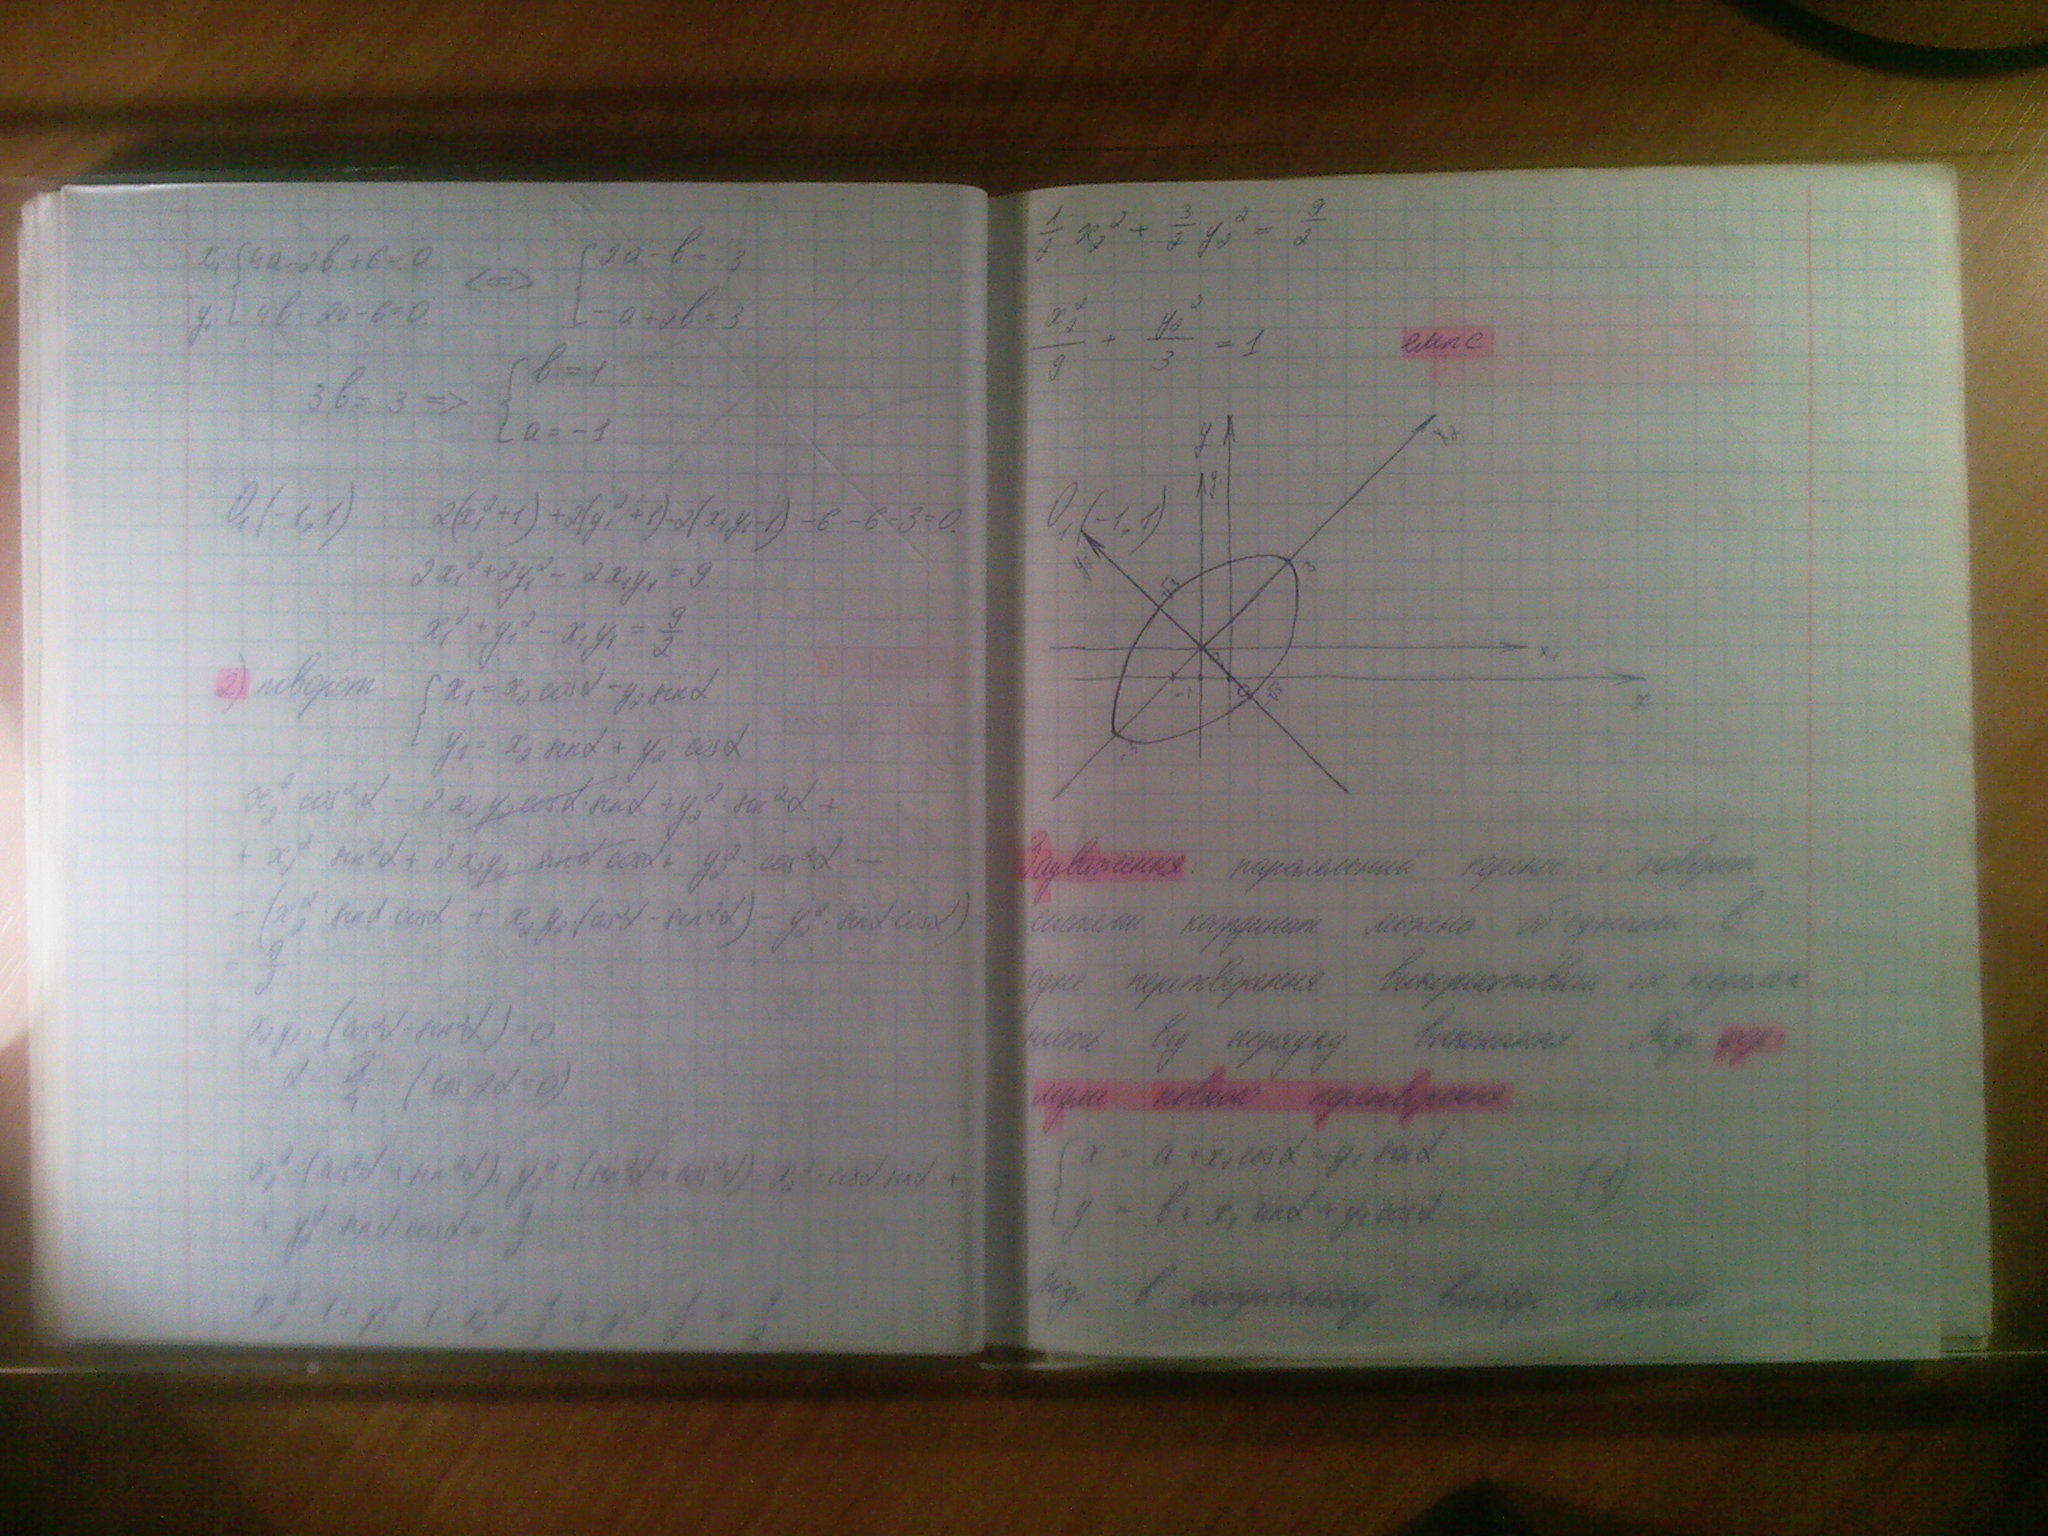 x₁ { 4a-2b+6=0 <=> { 2a-b=-3
y₁ { 4b-2a-6=0 { -a+2b=3
3b=3 => { b=1
{ a=-1
O₁(-1,1) 2(x₁²+1)+2(y₁²+1)-2(x₁y₁-1)-6-6-3=0.
2x₁²+2y₁²-2x₁y₁=9.
x₁²+y₁²-x₁y₁=9/2
2) поворот { x₁=x₂cosα-y₂sinα
{ y₁=x₂sinα+y₂cosα
x₂²cos²α-2x₂y₂cosα·sinα+y₂²·sin²α+
+x₂²·sin²α+2x₂y₂·sinαcosα+y₂²·cos²α-
-(x₂²·sinαcosα+x₂y₂(cos²α-sin²α)-y₂²·sinαcosα)=
=9/2
x₂y₂(cos²α-sin²α)=0
α=π/4 (cos2α=0).
x₂²(cos²α+sin²α)+y₂²(sin²α+cos²α)-x₂²·cosαsinα+
+y₂²sinαcosα=9/2
1/2 x₂²+3/2 y₂²=9/2
x₂²/9+y₂²/3=1 еліпс
y
y₁
x₂
O₁(-1,1)
y₂
√3
3
x₁
-1
0
-√3
x
-3
Зауваження: паралельний перенос і поворот
системи координат можна об'єднати в
одне перетворення використавши їх незалеж
ність від порядку виконання. Тоді фор-
мули повного перетворення
{ x=a+x₁cosα-y₁sinα
{ y=b+x₁sinα+y₁cosα (1)
Тоді в матричному вигляді